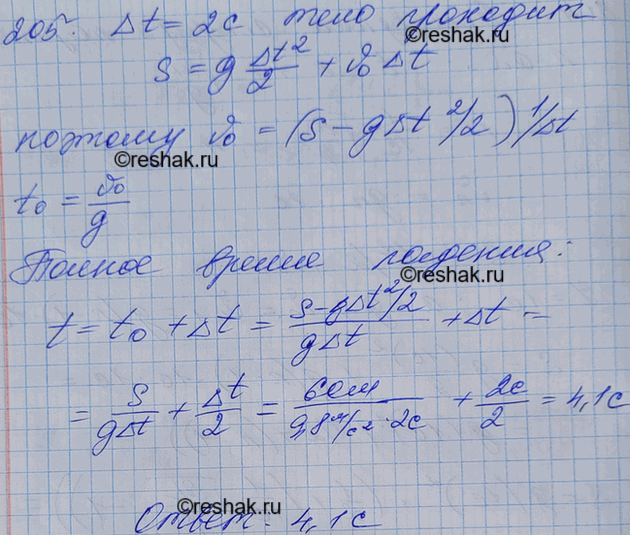 205. Δt = 2с тело проходит
©reshak.ru
S = g Δt²/2 + v₀ Δt
поэтому v₀ = (S - gΔt²/2) 1/Δt
©reshak.ru
t₀ = v₀/g
Полное время падения:
©reshak.ru
t = t₀ + Δt = (S - gΔt²/2)/(gΔt) + Δt =
= S/(gΔt) + Δt/2 = 60м/(9,8 м/с² · 2с) + 2с/2 = 4,1с
©reshak.ru
Ответ: 4,1с